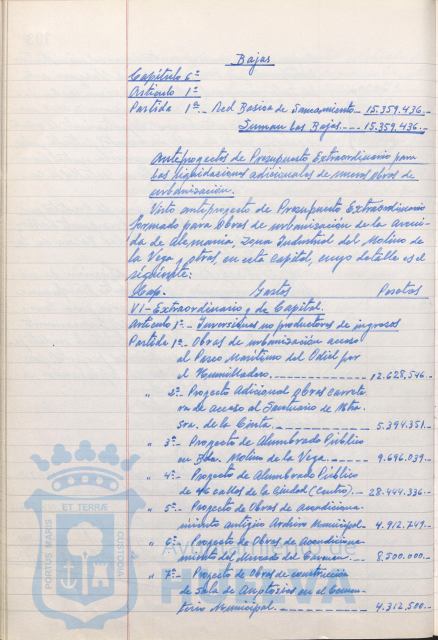 Bajas
Capítulo 6º
Artículo 1º
Partida 1ª.- Red Basica de Saneamiento- 15.359.436.-
Suman las Bajas.--- 15.359.436.-
Anteproyectos de Presupuesto Extraordinario para
las liquidaciones adicionales de nuevas Obras de
urbanización.
Visto anteproyecto de Presupuesto Extraordinario
formado para Obras de urbanización de la Aveni-
da de Alemania, Zona Industrial del Molino de
la Vega y otras, en esta capital, cuyo detalle es el
siguiente:
Cap. Gastos Pesetas
VI-Extraordinario y de Capital.
Artículo 1º- Inversiones no productoras de ingresos
Partida 1ª- Obras de urbanización acceso
al Paseo Marítimo del Odiel por
el Humilladero.---------- 12.628.546.-
" 2ª- Proyecto Adicional Obras carrete
ra de acceso al Santuario de Ntra.
Sra. de la Cinta.-------- 5.394.351.-
" 3ª- Proyecto de Alumbrado Público
en Bda. Molino de la Vega.---- 9.696.039.-
" 4ª- Proyecto de Alumbrado Público
de 46 calles de la Ciudad (Centro).- 28.444.336.-
" 5ª- Proyecto de Obras de acondiciona-
miento antiguo Archivo Municipal- 4.912.749.-
" 6ª- Proyecto de Obras de Acondiciona-
miento del Mercado del Carmen.- 8.500.000.-
" 7ª- Proyecto de Obras de construcción
de Sala de Autopsias en el Cemen-
terio Municipal.--------- 4.312.500.-
PORTUS MARIS ET TERRÆ CUSTODIA